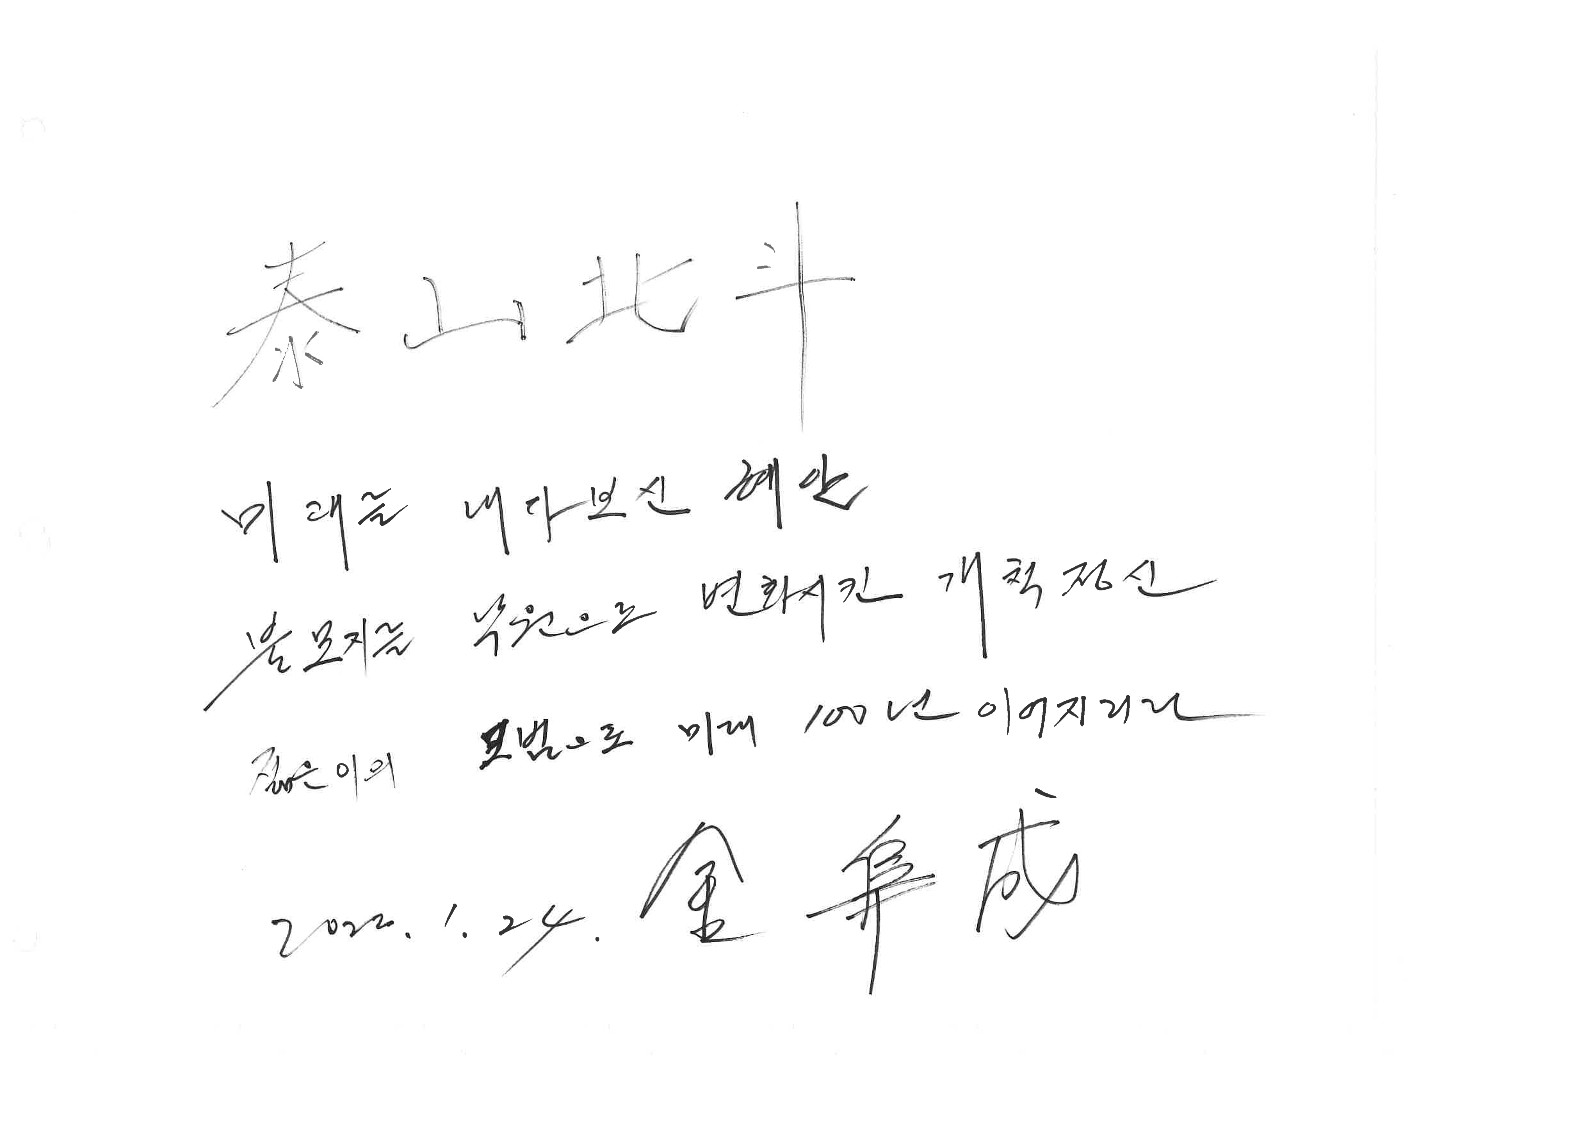 泰山北斗
미래를 내다보신 혜안
불모지를 낙원으로 변화시킨 개척정신
젊은이의 모범으로 미래 100년 이어지리라
2022. 1. 24. 金 成